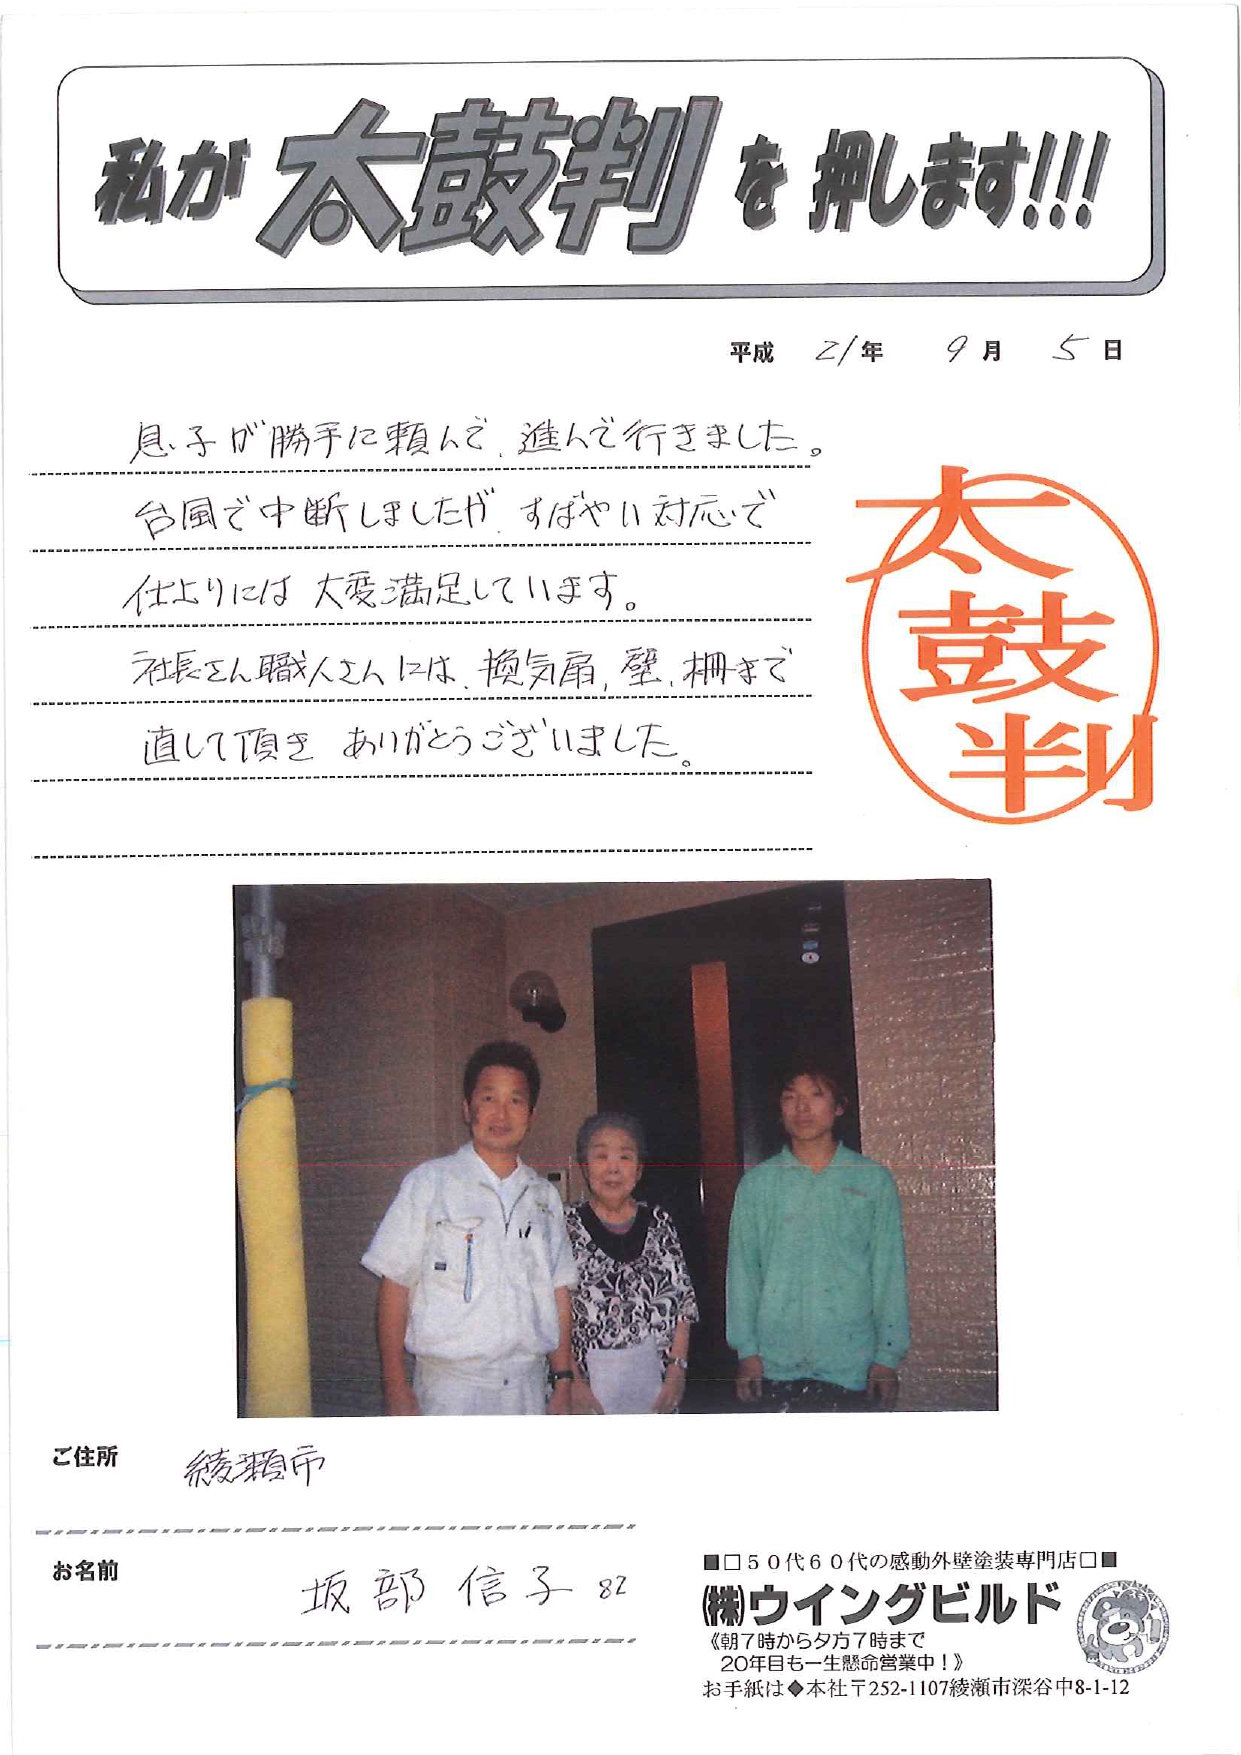 私が太鼓判を押します!!!
平成 21年 9月 5日
息子が勝手に頼んで、進んで行きました。
台風で中断しましたが、すばやい対応で
仕上りには 大変満足しています。
社長さん職人さんには、換気扇、壁、柵まで
直して頂き ありがとうございました。
太鼓判
ご住所 綾瀬市
お名前 坂部 信子 82
■□50代60代の感動外壁塗装専門店□■
㈱ウイングビルド
《朝7時から夕方7時まで
20年目も一生懸命営業中！》
お手紙は◆本社〒252-1107綾瀬市深谷中8-1-12